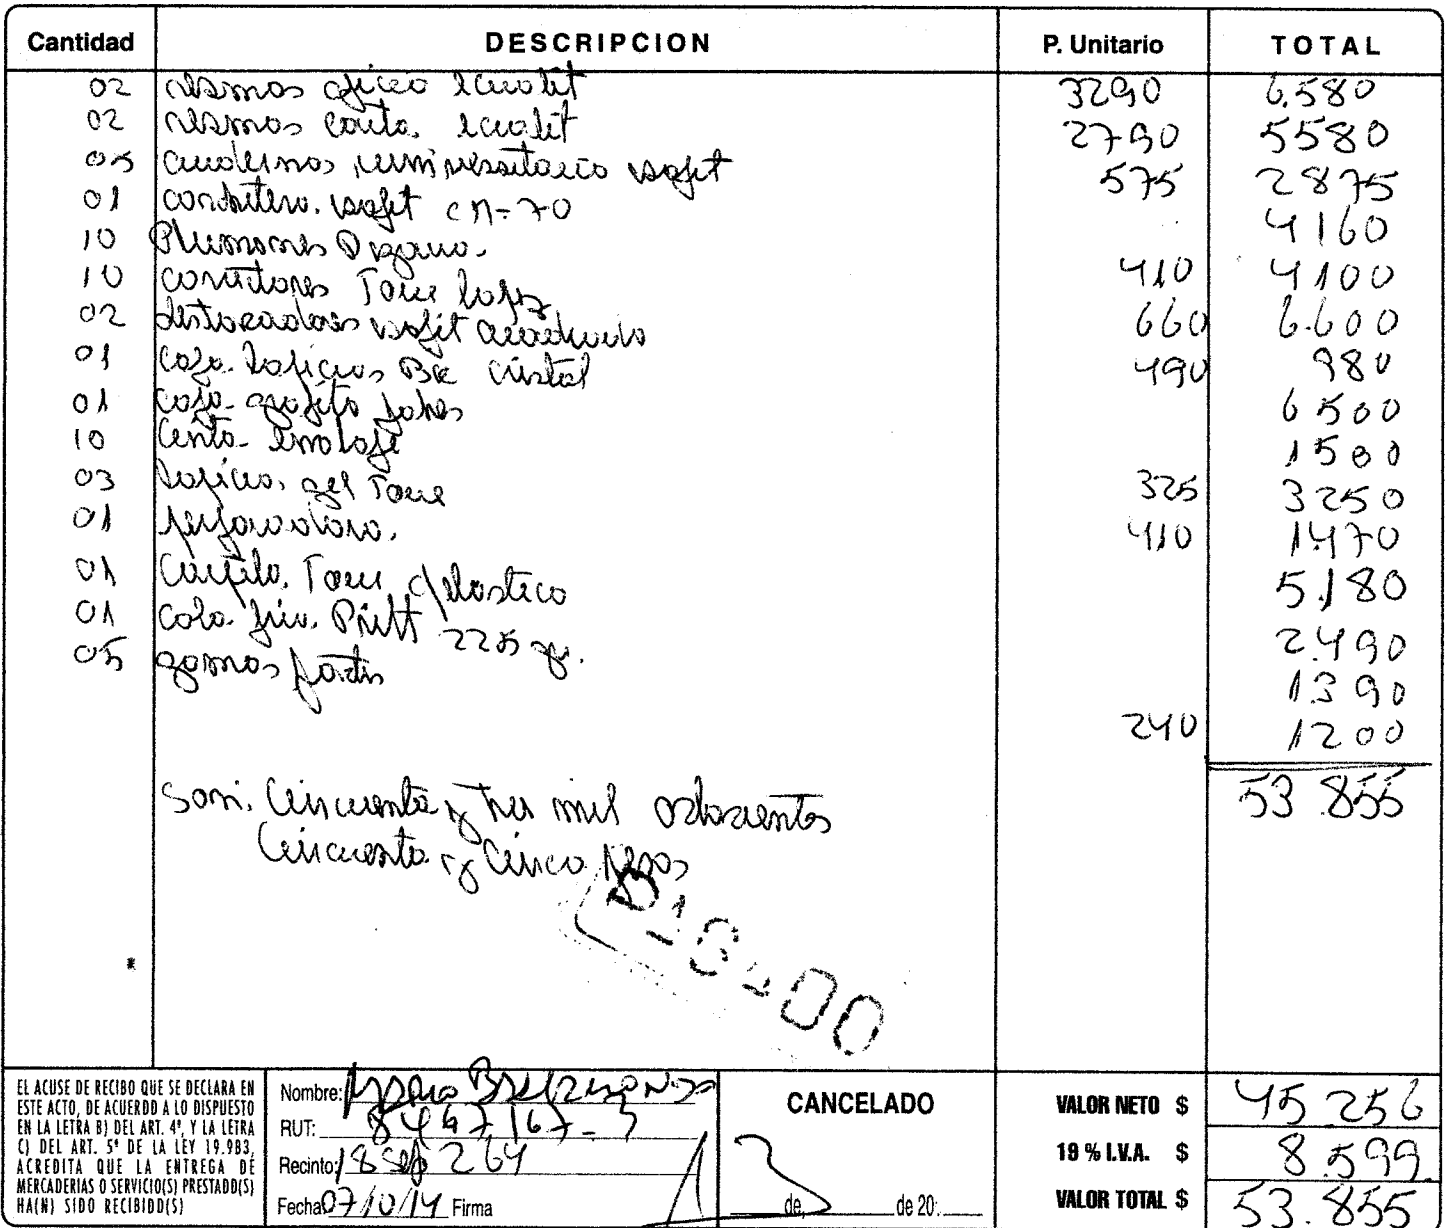 Cantidad DESCRIPCION P. Unitario TOTAL
02 resmas oficio ecualit 3290 6.580
02 resmas carta ecualit 2790 5580
05 cuadernos universitario 575 2875
01 corchetera cn-70 4160
10 Plumones 410 4100
10 correctores Torre 660 6.600
02 destacadores 490 980
01 caja Bic cristal 6500
01 caja grafito 1500
10 cinta embalaje 325 3250
03 gel Torre 410 1.470
01 perforadora. 5.180
01 Torre c/elastico 2.490
01 cola fria. Pritt 225 gr. 1390
05 gomas 240 1200
53.855
Son. Cincuenta y tres mil ochocientos
Cincuenta y Cinco pesos
EL ACUSE DE RECIBO QUE SE DECLARA EN
ESTE ACTO, DE ACUERDO A LO DISPUESTO
EN LA LETRA B) DEL ART. 4º, Y LA LETRA
C) DEL ART. 5º DE LA LEY 19.983,
ACREDITA QUE LA ENTREGA DE
MERCADERIAS O SERVICIO(S) PRESTADO(S)
HA(N) SIDO RECIBIDO(S)
Nombre:
RUT:
Recinto: 18 Sep 264
Fecha 07/10/14 Firma
CANCELADO
de, de 20:
VALOR NETO $ 45.256
19 % I.V.A. $ 8.599
VALOR TOTAL $ 53.855